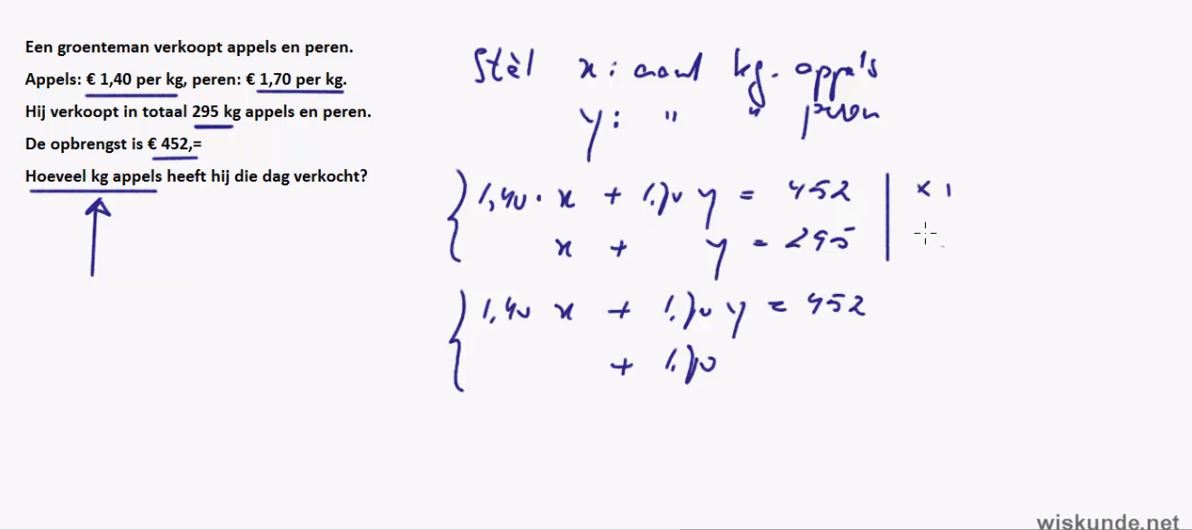 Een groenteman verkoopt appels en peren.
Appels: € 1,40 per kg, peren: € 1,70 per kg.
Hij verkoopt in totaal 295 kg appels en peren.
De opbrengst is € 452,=
Hoeveel kg appels heeft hij die dag verkocht?
Stèl x : aantal kg. appels
y : " " peren
1,40 · x + 1,70 y = 452 | × 1
x + y = 295
1,40 x + 1,70 y = 452
+ 1,70
wiskunde.net